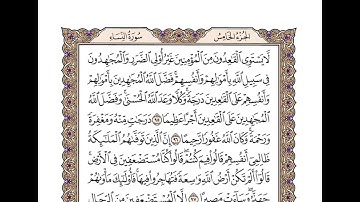 الجزء الخامس
سورة النساء
لَّا يَسْتَوِى ٱلْقَٰعِدُونَ مِنَ ٱلْمُؤْمِنِينَ غَيْرُ أُو۟لِى ٱلضَّرَرِ وَٱلْمُجَٰهِدُونَ
فِى سَبِيلِ ٱللَّهِ بِأَمْوَٰلِهِمْ وَأَنفُسِهِمْ ۚ فَضَّلَ ٱللَّهُ ٱلْمُجَٰهِدِينَ بِأَمْوَٰلِهِمْ
وَأَنفُسِهِمْ عَلَى ٱلْقَٰعِدِينَ دَرَجَةً ۚ وَكُلًّا وَعَدَ ٱللَّهُ ٱلْحُسْنَىٰ ۚ وَفَضَّلَ ٱللَّهُ
ٱلْمُجَٰهِدِينَ عَلَى ٱلْقَٰعِدِينَ أَجْرًا عَظِيمًا ٩٥ دَرَجَٰتٍ مِّنْهُ وَمَغْفِرَةً
وَرَحْمَةً ۚ وَكَانَ ٱللَّهُ غَفُورًا رَّحِيمًا ٩٦ إِنَّ ٱلَّذِينَ تَوَفَّىٰهُمُ ٱلْمَلَٰٓئِكَةُ
ظَالِمِىٓ أَنفُسِهِمْ قَالُوا۟ فِيمَ كُنتُمْ ۖ قَالُوا۟ كُنَّا مُسْتَضْعَفِينَ فِى ٱلْأَرْضِ ۚ
قَالُوٓا۟ أَلَمْ تَكُنْ أَرْضُ ٱللَّهِ وَٰسِعَةً فَتُهَاجِرُوا۟ فِيهَا ۚ فَأُو۟لَٰٓئِكَ مَأْوَىٰهُمْ
جَهَنَّمُ ۖ وَسَآءَتْ مَصِيرًا ٩٧ إِلَّا ٱلْمُسْتَضْعَفِينَ مِنَ ٱلرِّجَالِ